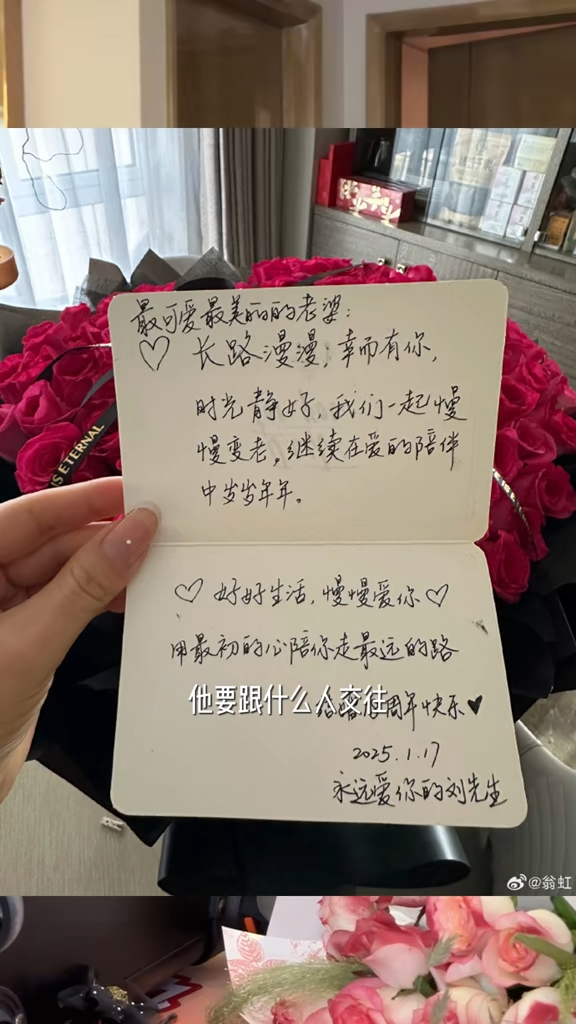 最可爱最美丽的老婆：
♡ 长路漫漫，幸而有你，
时光静好，我们一起慢
慢变老，继续在爱的陪伴
中岁岁年年。
IS ETERNAL
♡ 好好生活，慢慢爱你♡
用最初的心陪你走最远的路
他要跟什么人交往
周年快乐♥
2025.1.17
永远爱你的刘先生
@翁虹